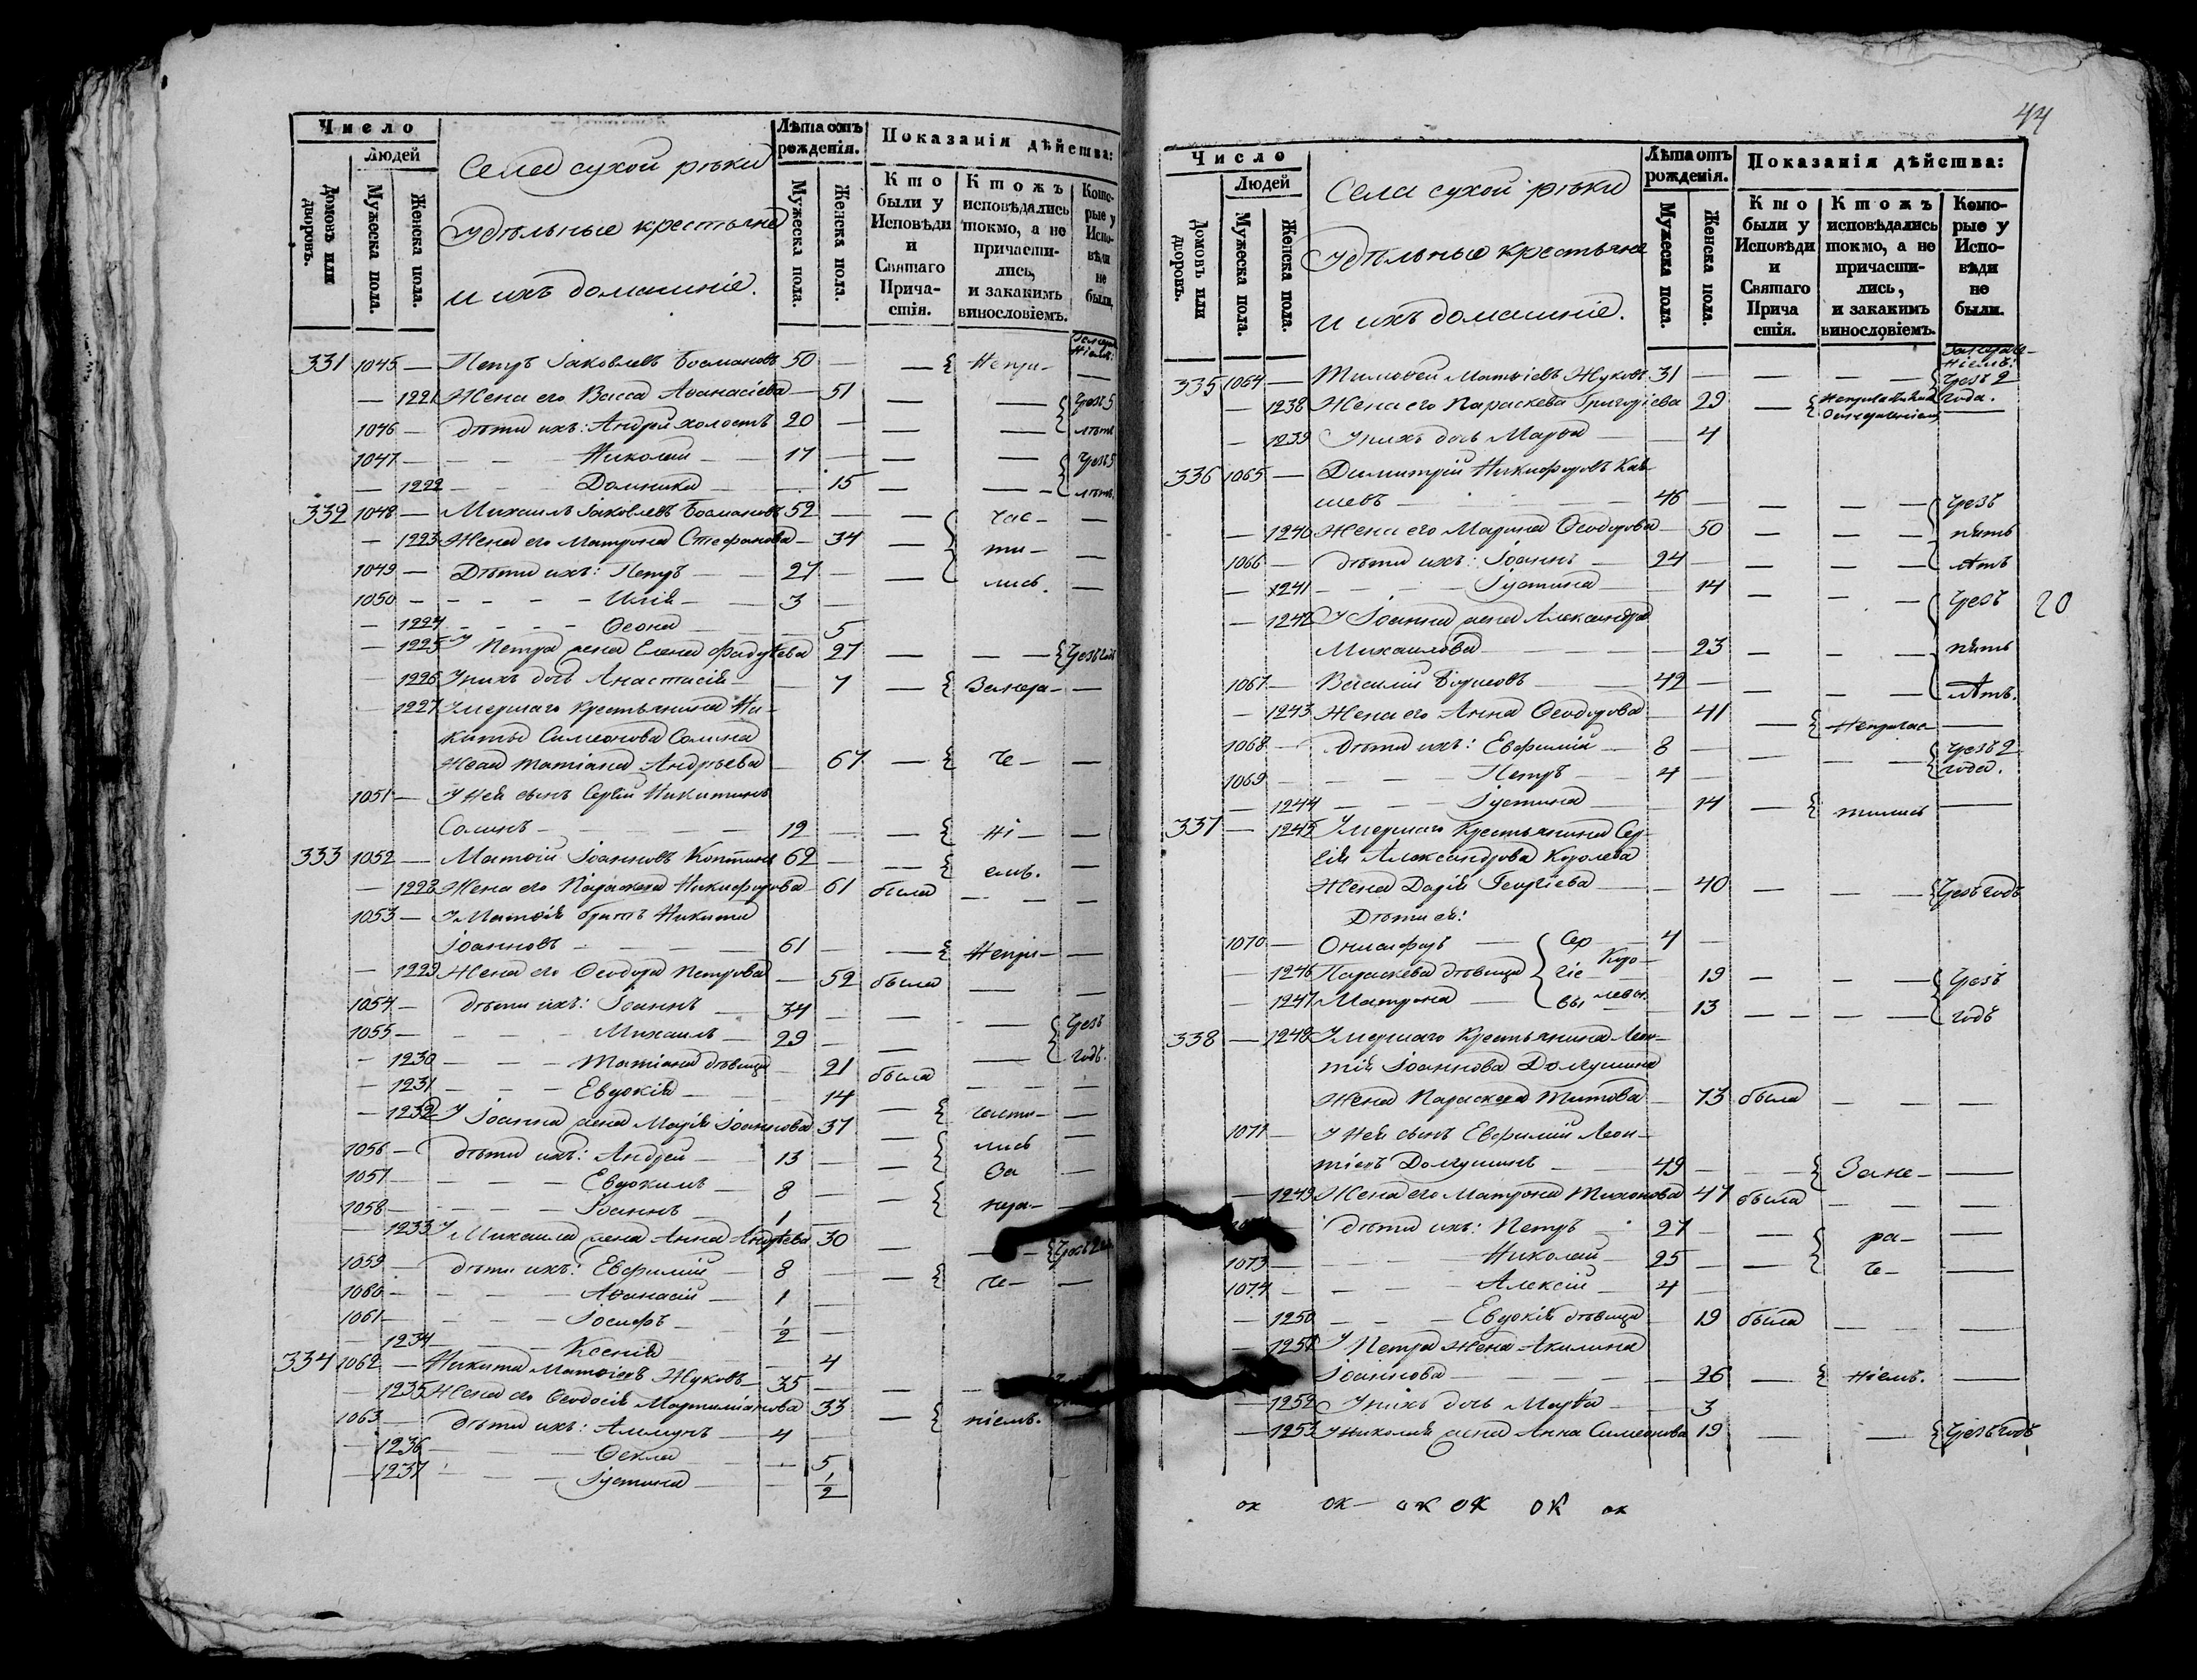 Число
Людей
Домовъ или дворовъ.
Мужеска пола.
Женска пола.
Села сухой рѣки
Удѣльные крестьяне
и ихъ домашніе.
Лѣта отъ рожденія.
Мужеска пола.
Женска пола.
Показанія дѣйства:
Кто были у Исповѣди и Святаго Причастія.
Ктожъ исповѣдались токмо, а не причастились, и закакимъ винословіемъ.
Которые у Исповѣди не были.
331 1045 — Петръ Іаковлевъ 50 — — Непри- —
— 1221 Жена его Васса Аѳанасіева — 51 — — Чрезъ 5
1046 — дѣти ихъ: Андрей холостъ 20 — — — лѣтъ
1047 — Николай — 17 — — — Чрезъ 5
— 1222 — Домника — 15 — — лѣтъ.
332 1048 — Михаилъ Іаковлевъ 52 — — час- —
— 1223 Жена его Матрона Стефанова — 34 — ти- —
1049 — Дѣти ихъ: Петръ — 27 — — лись. —
1050 — Илія — 3 —
— 1224 — Ѳеона — 5
— 1225 У Петра жена Елена Фадѣева 27 — — Чрезъ годъ
— 1226 У нихъ дочь Анастасія — 7 — Занера- —
— 1227 Умершаго Крестьянина Ни-
киты Симеонова Солина
Жена Татіана Андрѣева — 67 — че- —
1051 — У ней сынъ Сергій Никитинъ
Солинъ — 19 — — ні- —
333 1052 — Матѳій Іоанновъ 62 — — емъ. —
— 1228 Жена его Параскева Никифорова — 61 была — —
1053 — У Матѳія братъ Никита
Іоанновъ — 61 — — Непри- —
— 1229 Жена его Ѳеодора Петрова — 52 была — —
1054 — дѣти ихъ: Іоаннъ — 34 — — — Чрезъ
1055 — Михаилъ — 29 — — — годъ.
— 1230 — Татіана дѣвица — 21 была — —
— 1231 — Евдокія — 14 — части- —
— 1232 У Іоанна жена Марія Іоаннова 37 — лись —
1056 — дѣти ихъ: Андрей — 13 — — За —
1057 — Евдокимъ — 8 — — нера- —
1058 — Іоаннъ — 1
— 1233 У Михаила жена Анна Андрѣева 30 — — Чрезъ
1059 — дѣти ихъ: Евѳимій — 8 — — че- —
1060 — Аѳанасій — 1 —
1061 — Іосифъ — 1/2 —
— 1234 — Ксенія — 4
334 1062 — Никита Матѳіевъ Жуковъ — 35 — — —
— 1235 Жена его Ѳеодосія Мартиніанова 33 — ніемъ.
1063 — дѣти ихъ: — 4 —
— 1236 — Ѳекла — 5
— 1237 — Іустина — 1/2
44
Число
Людей
Домовъ или дворовъ.
Мужеска пола.
Женска пола.
Села сухой рѣки
Удѣльные крестьяне
и ихъ домашніе.
Лѣта отъ рожденія.
Мужеска пола.
Женска пола.
Показанія дѣйства:
Кто были у Исповѣди и Святаго Причастія.
Ктожъ исповѣдались токмо, а не причастились, и закакимъ винословіемъ.
Которые у Исповѣди не были.
335 1064 — Тимоѳей Матѳіевъ Жуковъ 31 — — — Чрезъ 2
— 1238 Жена его Параскева Григоріева 29 — года.
— 1239 У нихъ дочь Марѳа — 4
336 1065 — Димитрій Никифоровъ
46 — — — Чрезъ
— 1240 Жена его Марина Ѳеодорова — 50 — — пять
1066 — дѣти ихъ: Іоаннъ — 24 — — — лѣтъ
— 1241 — Іустина — 14 — — Чрезъ 20
— 1242 У Іоанна жена Александра
Михаилова — 23 — — пять
1067 — Василій Борисовъ — 42 — — — лѣтъ.
— 1243 Жена его Анна Ѳеодорова — 41 — Непричас —
1068 — дѣти ихъ: Евѳимій — 8 — — — Чрезъ 2
1069 — Петръ — 4 — года.
— 1244 — Іустина — 14 — тились —
337 — 1245 Умершаго Крестьянина Сер-
гія Александрова Королева
Жена Дарія Георгіева — 40 — — Чрезъ годъ
Дѣти ея:
1070 — Онисифоръ — Сер Коро- 4 —
— 1246 Параскева дѣвица гіе — 19 — — Чрезъ
— 1247 Матрона — вы левы. 13 — — годъ
338 — 1248 Умершаго Крестьянина Леон-
тія Іоаннова Долгушина
Жена Параскева Титова — 73 была — —
1071 — У ней сынъ Евѳимій Леон-
тіевъ Долгушинъ — 49 — — Зане- —
— 1249 Жена его Матрона Тихонова 47 была — —
— дѣти ихъ: Петръ — 27 — — ра- —
1073 — Николай — 25 — — че- —
1074 — Алексій — 4 —
— 1250 — Евдокія дѣвица — 19 была — —
— 1251 У Петра жена Акилина
Іоаннова — 26 — ніемъ. —
— 1252 У нихъ дочь Марѳа — 3
— 1253 У Николая жена Анна Симеонова 19 — — Чрезъ годъ
ок ок — ок ок ок ок